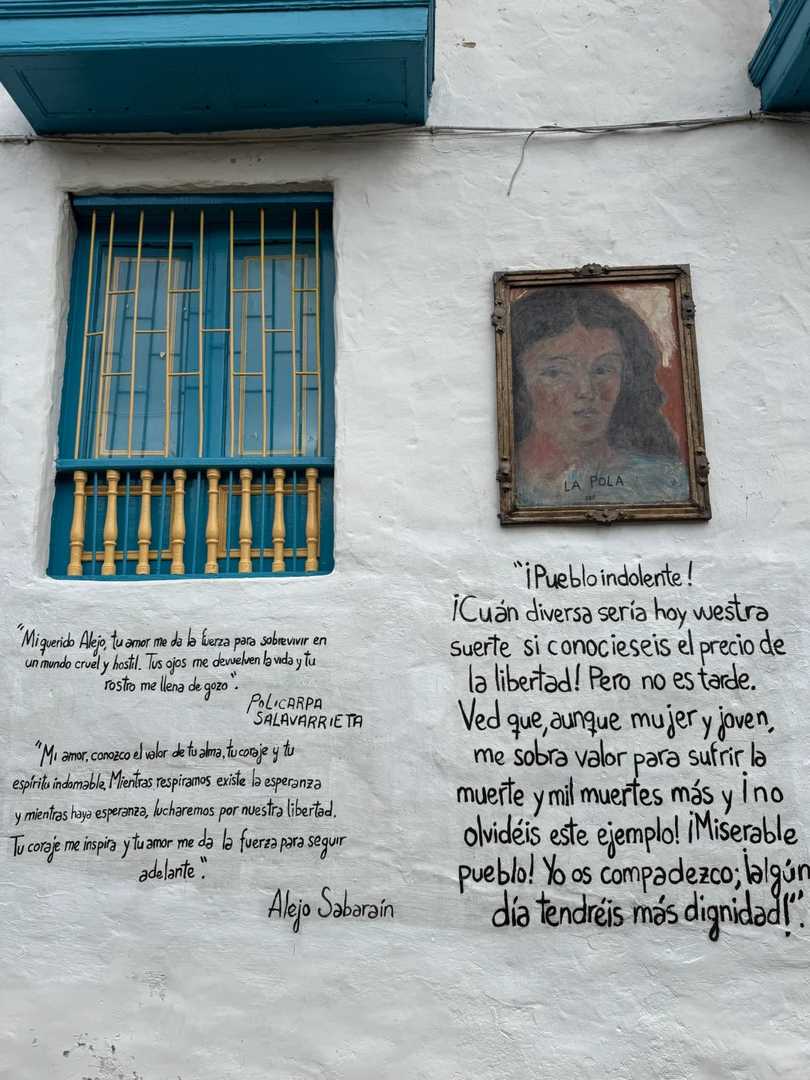 "Mi querido Alejo, tu amor me da la fuerza para sobrevivir en
un mundo cruel y hostil. Tus ojos me devuelven la vida y tu
rostro me llena de gozo".
POLICARPA
SALAVARRIETA
"Mi amor, conozco el valor de tu alma, tu coraje y tu
espíritu indomable, Mientras respiramos existe la esperanza
y mientras haya esperanza, lucharemos por nuestra libertad.
Tu coraje me inspira y tu amor me da la fuerza para seguir
adelante".
Alejo Sabaraín
LA POLA
"¡Pueblo indolente!
¡Cuán diversa sería hoy vuestra
suerte si conocieseis el precio de
la libertad! Pero no es tarde.
Ved que, aunque mujer y joven,
me sobra valor para sufrir la
muerte y mil muertes más y ¡no
olvidéis este ejemplo! ¡Miserable
pueblo! Yo os compadezco; ¡algún
día tendréis más dignidad!".